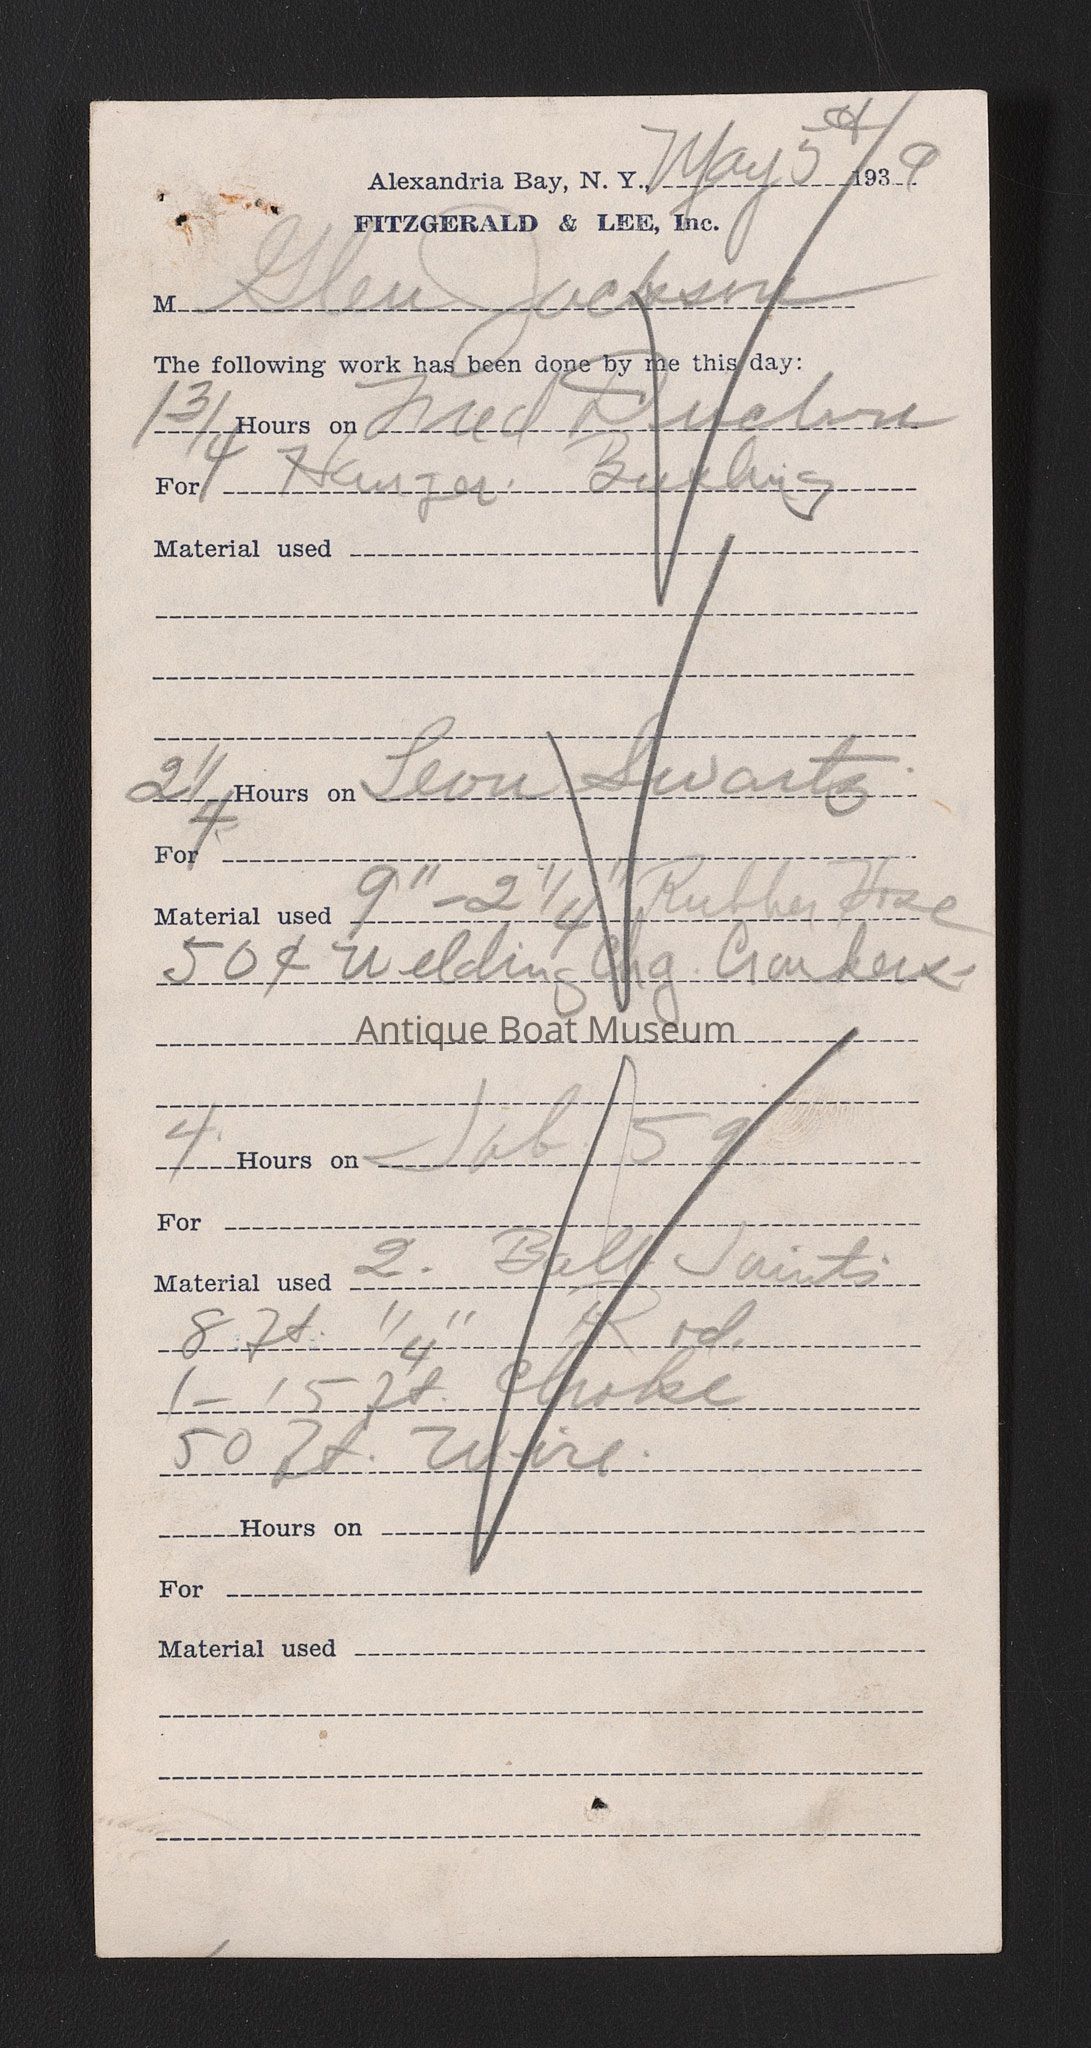 Alexandria Bay, N. Y., May 5th 1939
FITZGERALD & LEE, Inc.
M Glen Jackson
The following work has been done by me this day:
1 3/4 Hours on Fred
For Hanger Bushing
Material used
2 1/4 Hours on Leon Swartz
For
Material used 9" - 2 1/4" Rubber Hose
50¢ Welding Chg.
Antique Boat Museum
4 Hours on Job 59
For
Material used 2. Ball Joints
8 ft. 1/4" Rod.
1 - 15 ft. Choke
50 ft. Wire.
Hours on
For
Material used